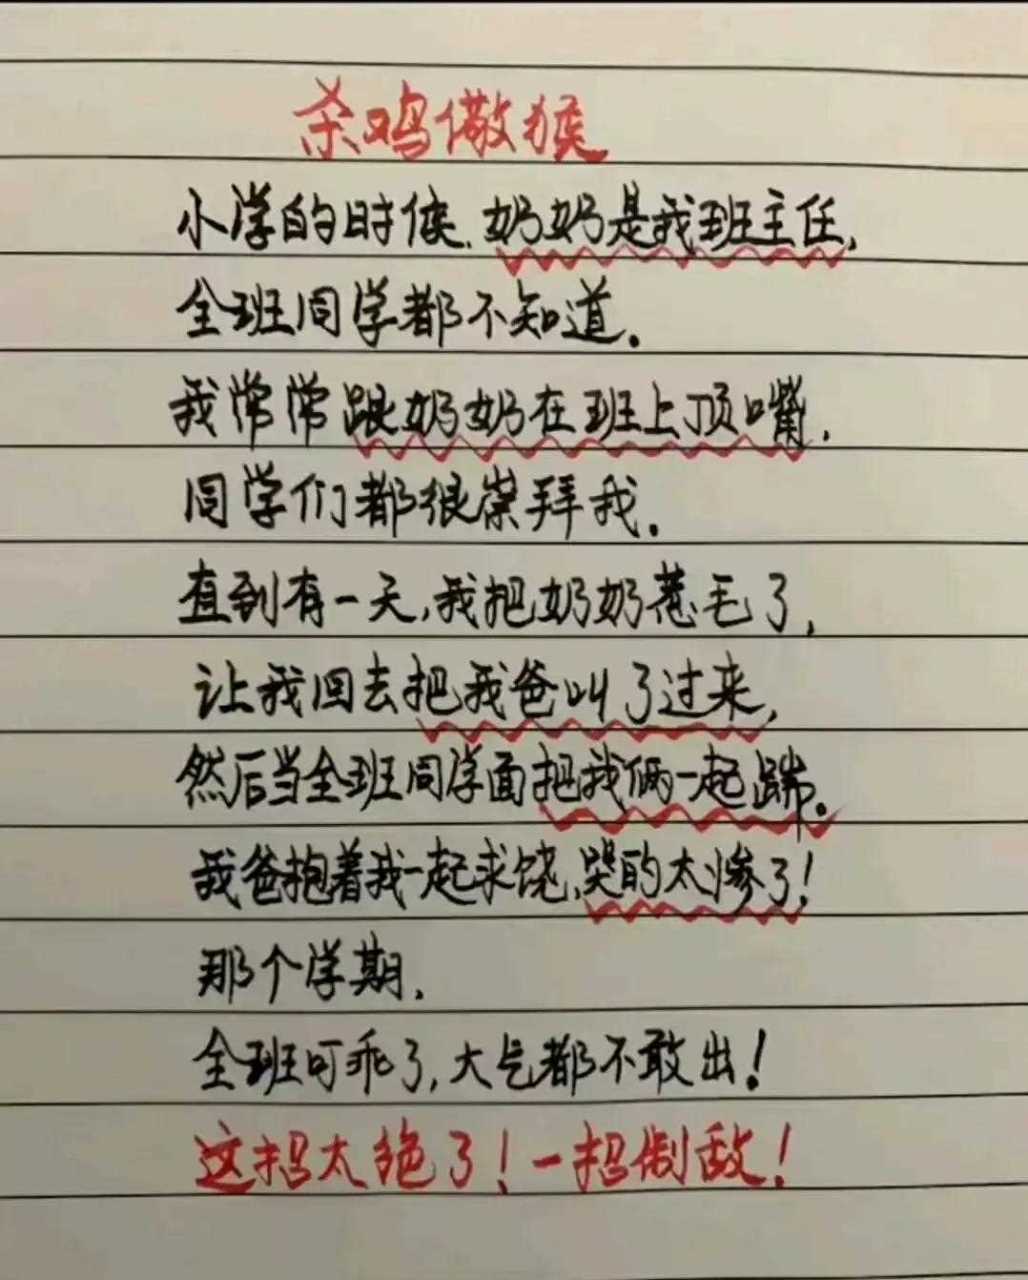 杀鸡儆猴
小学的时候,奶奶是我班主任,
全班同学都不知道。
我常常跟奶奶在班上顶嘴,
同学们都很崇拜我。
直到有一天,我把奶奶惹毛了,
让我回去把我爸叫了过来,
然后当全班同学面把我俩一起踹。
我爸抱着我一起求饶,哭的太惨了!
那个学期,
全班可乖了,大气都不敢出!
这招太绝了!一招制敌!